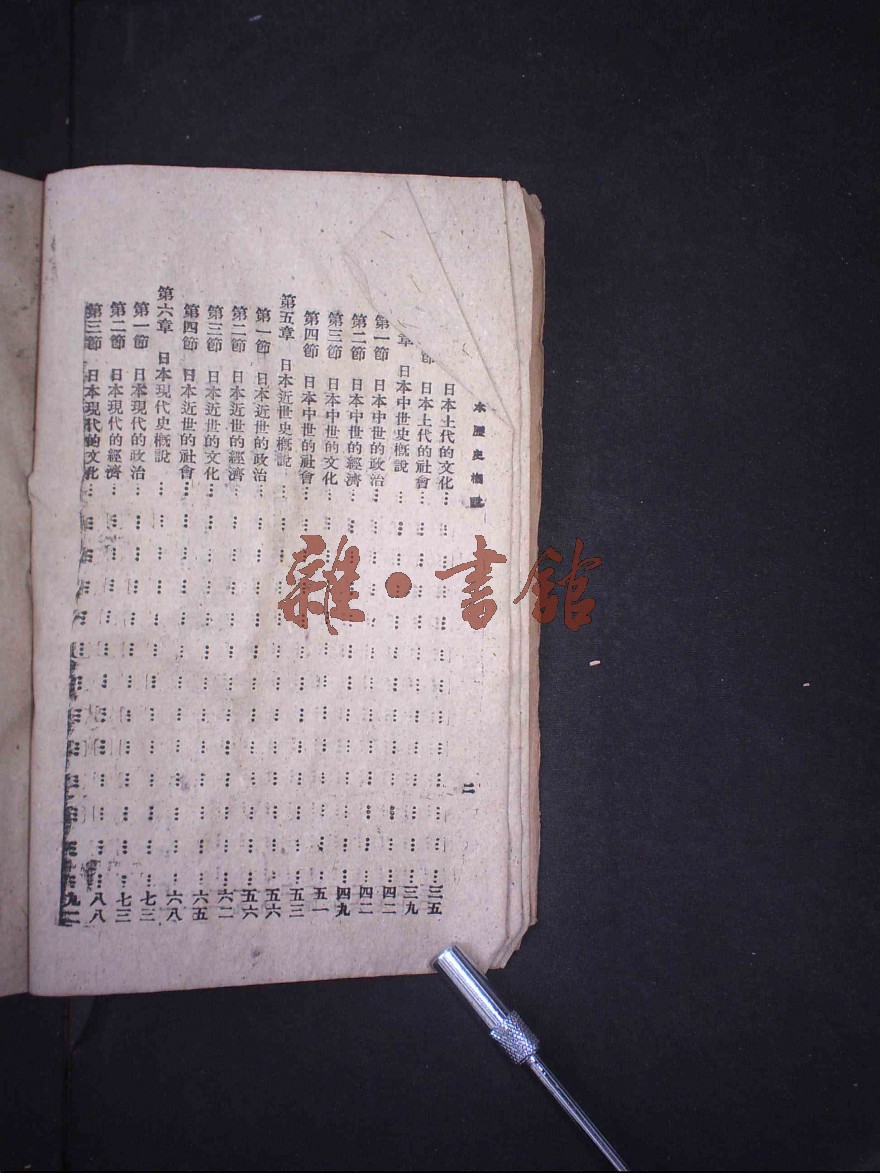 本歷史概說
二
日本上代的文化…………三五
節 日本上代的社會…………三九
章 日本中世史概說…………四二
第一節 日本中世的政治…………四二
第二節 日本中世的經濟…………四九
第三節 日本中世的文化…………五一
第四節 日本中世的社會…………五三
第五章 日本近世史概說…………五六
第一節 日本近世的政治…………五六
第二節 日本近世的經濟…………六二
第三節 日本近世的文化…………六五
第四節 日本近世的社會…………六八
第六章 日本現代史概說…………七三
第一節 日本現代的政治…………七三
第二節 日本現代的經濟…………八八
第三節 日本現代的文化…………九二
雜·書館